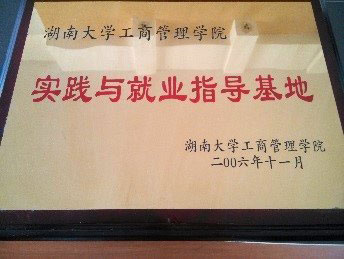 湖南大学工商管理学院
实践与就业指导基地
湖南大学工商管理学院
二00六年十一月